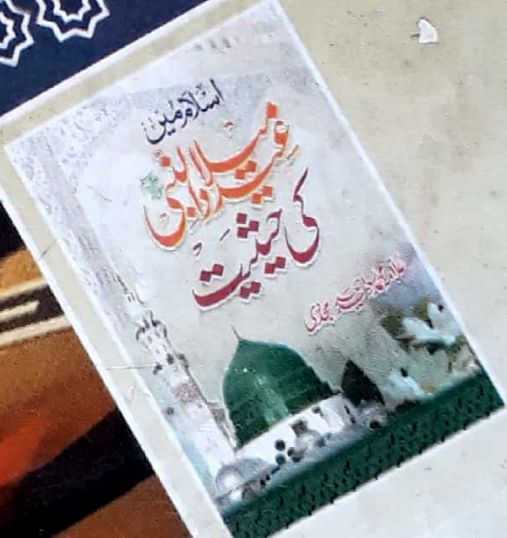 اسلام میں
عید میلاد النبی
کی حیثیت